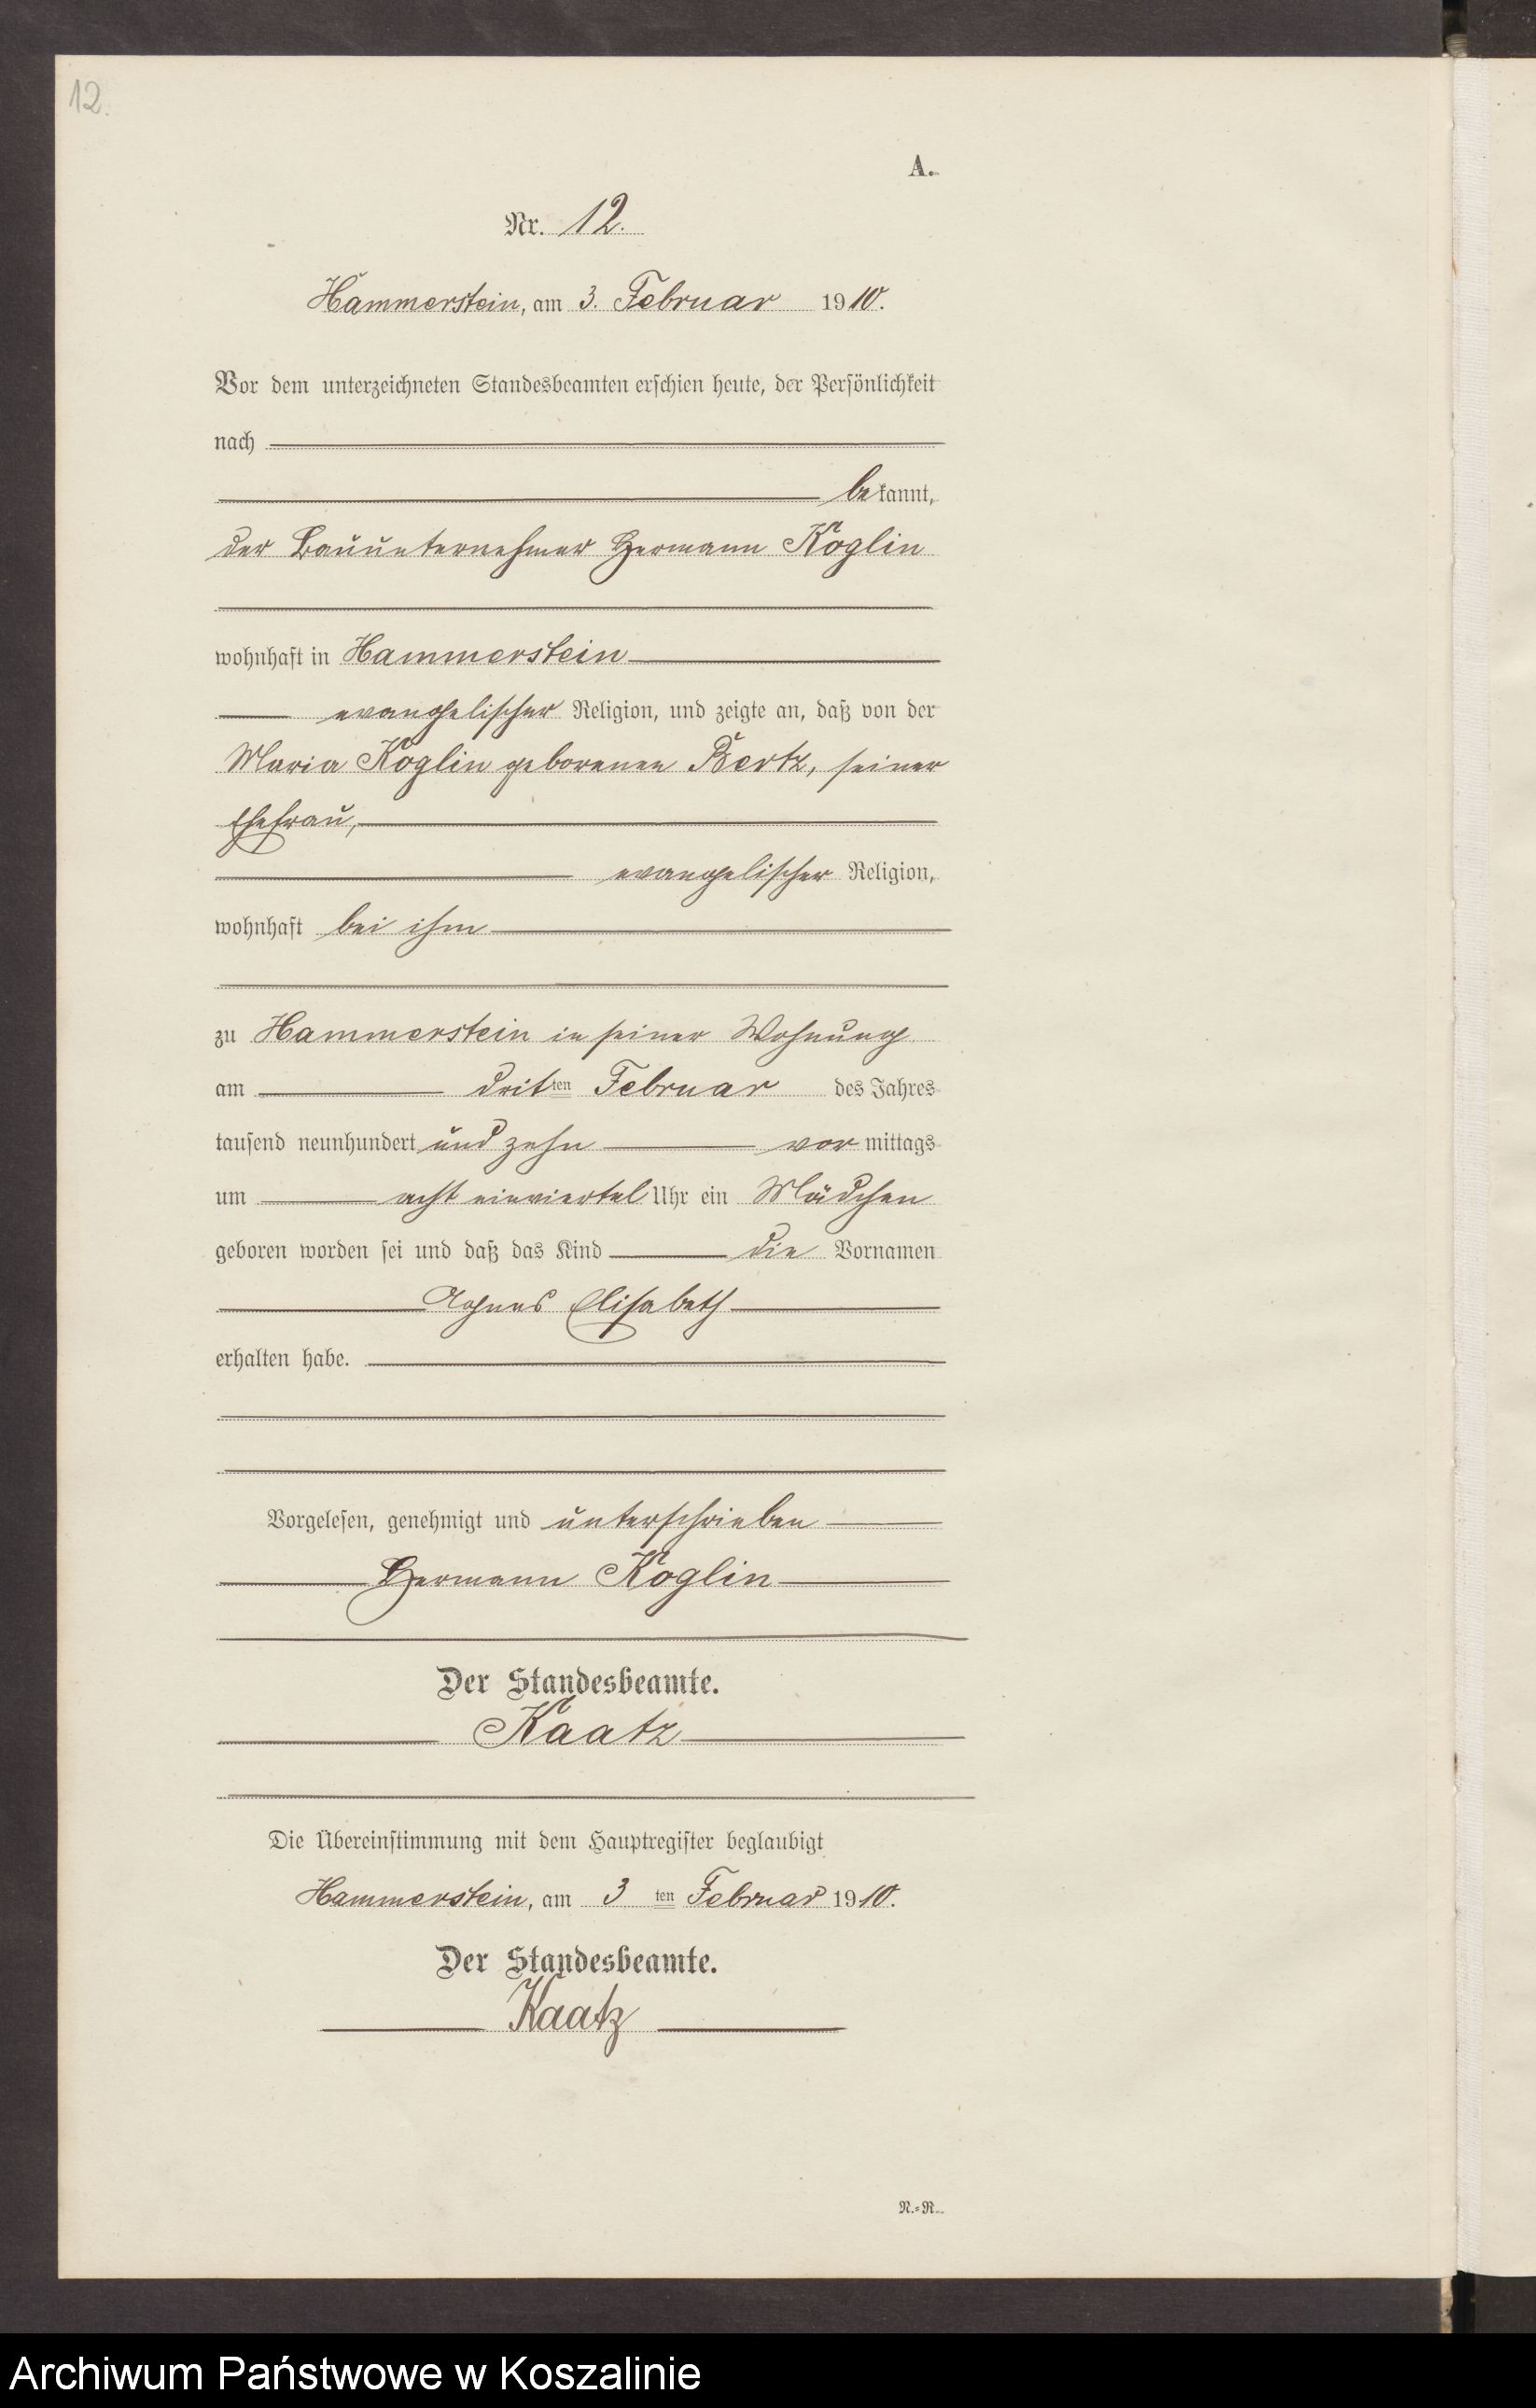 12.
A.
Nr. 12.
Hammerstein, am 3. Februar 1910.
Vor dem unterzeichneten Standesbeamten erschien heute, der Persönlichkeit
nach
bekannt,
der Bauunternehmer Hermann Koglin
wohnhaft in Hammerstein
evangelischer Religion, und zeigte an, daß von der
Maria Koglin geborenen Bertz, seiner
Ehefrau,
evangelischer Religion,
wohnhaft bei ihm
zu Hammerstein in seiner Wohnung
am dritten Februar des Jahres
tausend neunhundert und zehn vormittags
um acht einviertel Uhr ein Mädchen
geboren worden sei und daß das Kind die Vornamen
Agnes Elisabeth
erhalten habe.
Vorgelesen, genehmigt und unterschrieben
Hermann Koglin
Der Standesbeamte.
Kaatz
Die Übereinstimmung mit dem Hauptregister beglaubigt
Hammerstein, am 3 ten Februar 1910.
Der Standesbeamte.
Kaatz
N.=R.
Archiwum Państwowe w Koszalinie